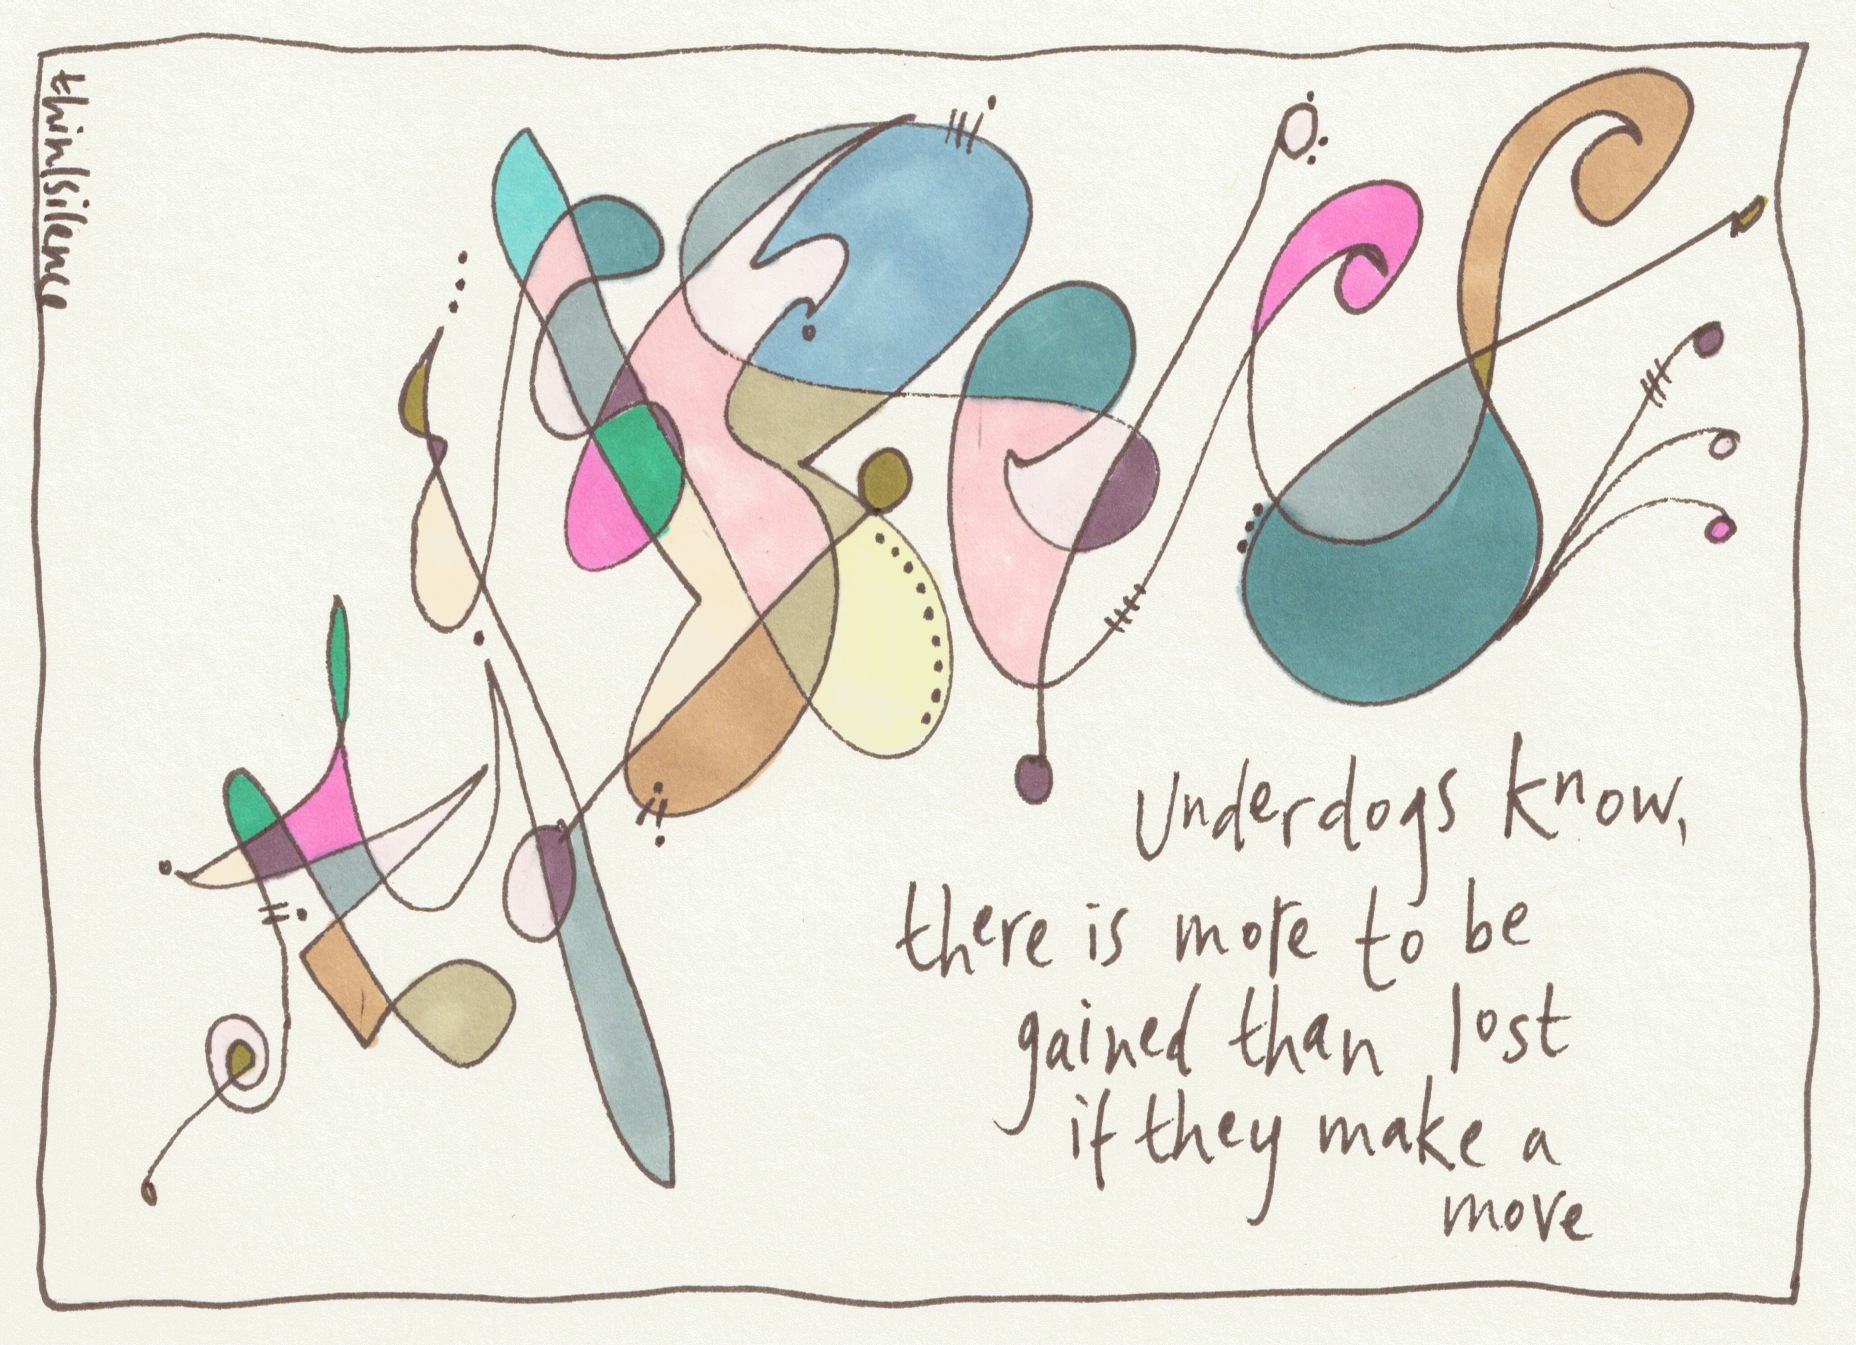 thinlsilence
Underdogs know,
there is more to be
gained than lost
if they make a
move